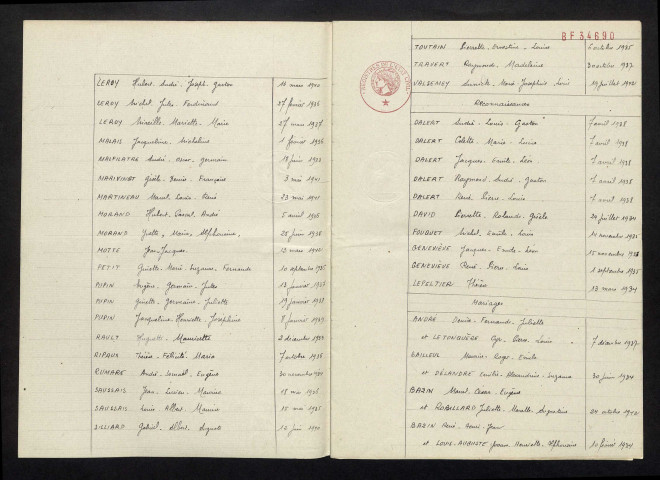 LEROY Hubert André Joseph Gaston 16 mars 1940
LEROY Michel Jules Ferdinand 27 février 1936
LEROY Mireille Mariette Marie 27 mai
MALAIS Jacqueline Micheline 1 février
MALPILATRE André Germain 18 juin
MARIVINET Gisèle Denise Françoise 3 mai 1941
MARTINEAU Marcel Louis René 23 mai 1941
MORAND Hubert Pascal André 5 avril
MORAND Yvette Maria Alphonsine 25 juin
MOTTE Jean Jacques 12 mars
PETIT Ginette Marie Suzanne Fernande 10 septembre
PUPIN Eugène Germain Jules 12 janvier
PUPIN Ginette Germaine Juliette 19 janvier 1938
PUPIN Jacqueline Henriette Joséphine 8 janvier
RAULT Huguette Mauricette 2 décembre
RIPAUX Thérèse Félicité Maria 7 octobre
RUMARE André Eugène 30 novembre
SAUSSAIS Jean Lucien Maurice 18 mai
SAUSSAIS Louis Albert Maurice 15 mai 1935
SILLIARD Gabriel Albert 12 juin
BF34690
TOUTAIN Pierrette Ernestine Louise 6 octobre 1935
TRAVERT Raymonde Madeleine 3 octobre 1937
VALSEMEY Marie Josèphe 14 juillet 1942
Reconnaissances
DALERT André Louis Gaston 7 avril 1938
DALERT Colette Marie Lucie 7 avril 1938
DALERT Jacques Emile Léon 7 avril 1938
DALERT Raymond André Gaston 7 avril 1938
DALERT René Pierre Louis 7 avril 1938
DAVID Pierrette Rolande Gisèle 20 juillet 1934
FOUQUET Michel Emile Louis 14 novembre 1935
GENEVIÈVE Jacques Emile Léon 15 novembre
GENEVIÈVE René Pierre Louis 1 septembre 1935
LEPELTIER 13 mars 1934
Mariages
ANDRE Denise Fernande Juliette
et LETONQUÈZE Pierre Louis 7 décembre 1937
BAILLEUL Maurice Roger Emile
et DÉLANDRE Emilie Alexandrine Suzanne 30 juin 1934
BAZIN Marcel César Eugène
et ROBILLARD Juliette Marcelle Augustine 24 octobre 1942
BAZIN René Henri Jean
et LOUIS-AUGUSTE Henriette Alphonsine 10 février 1934